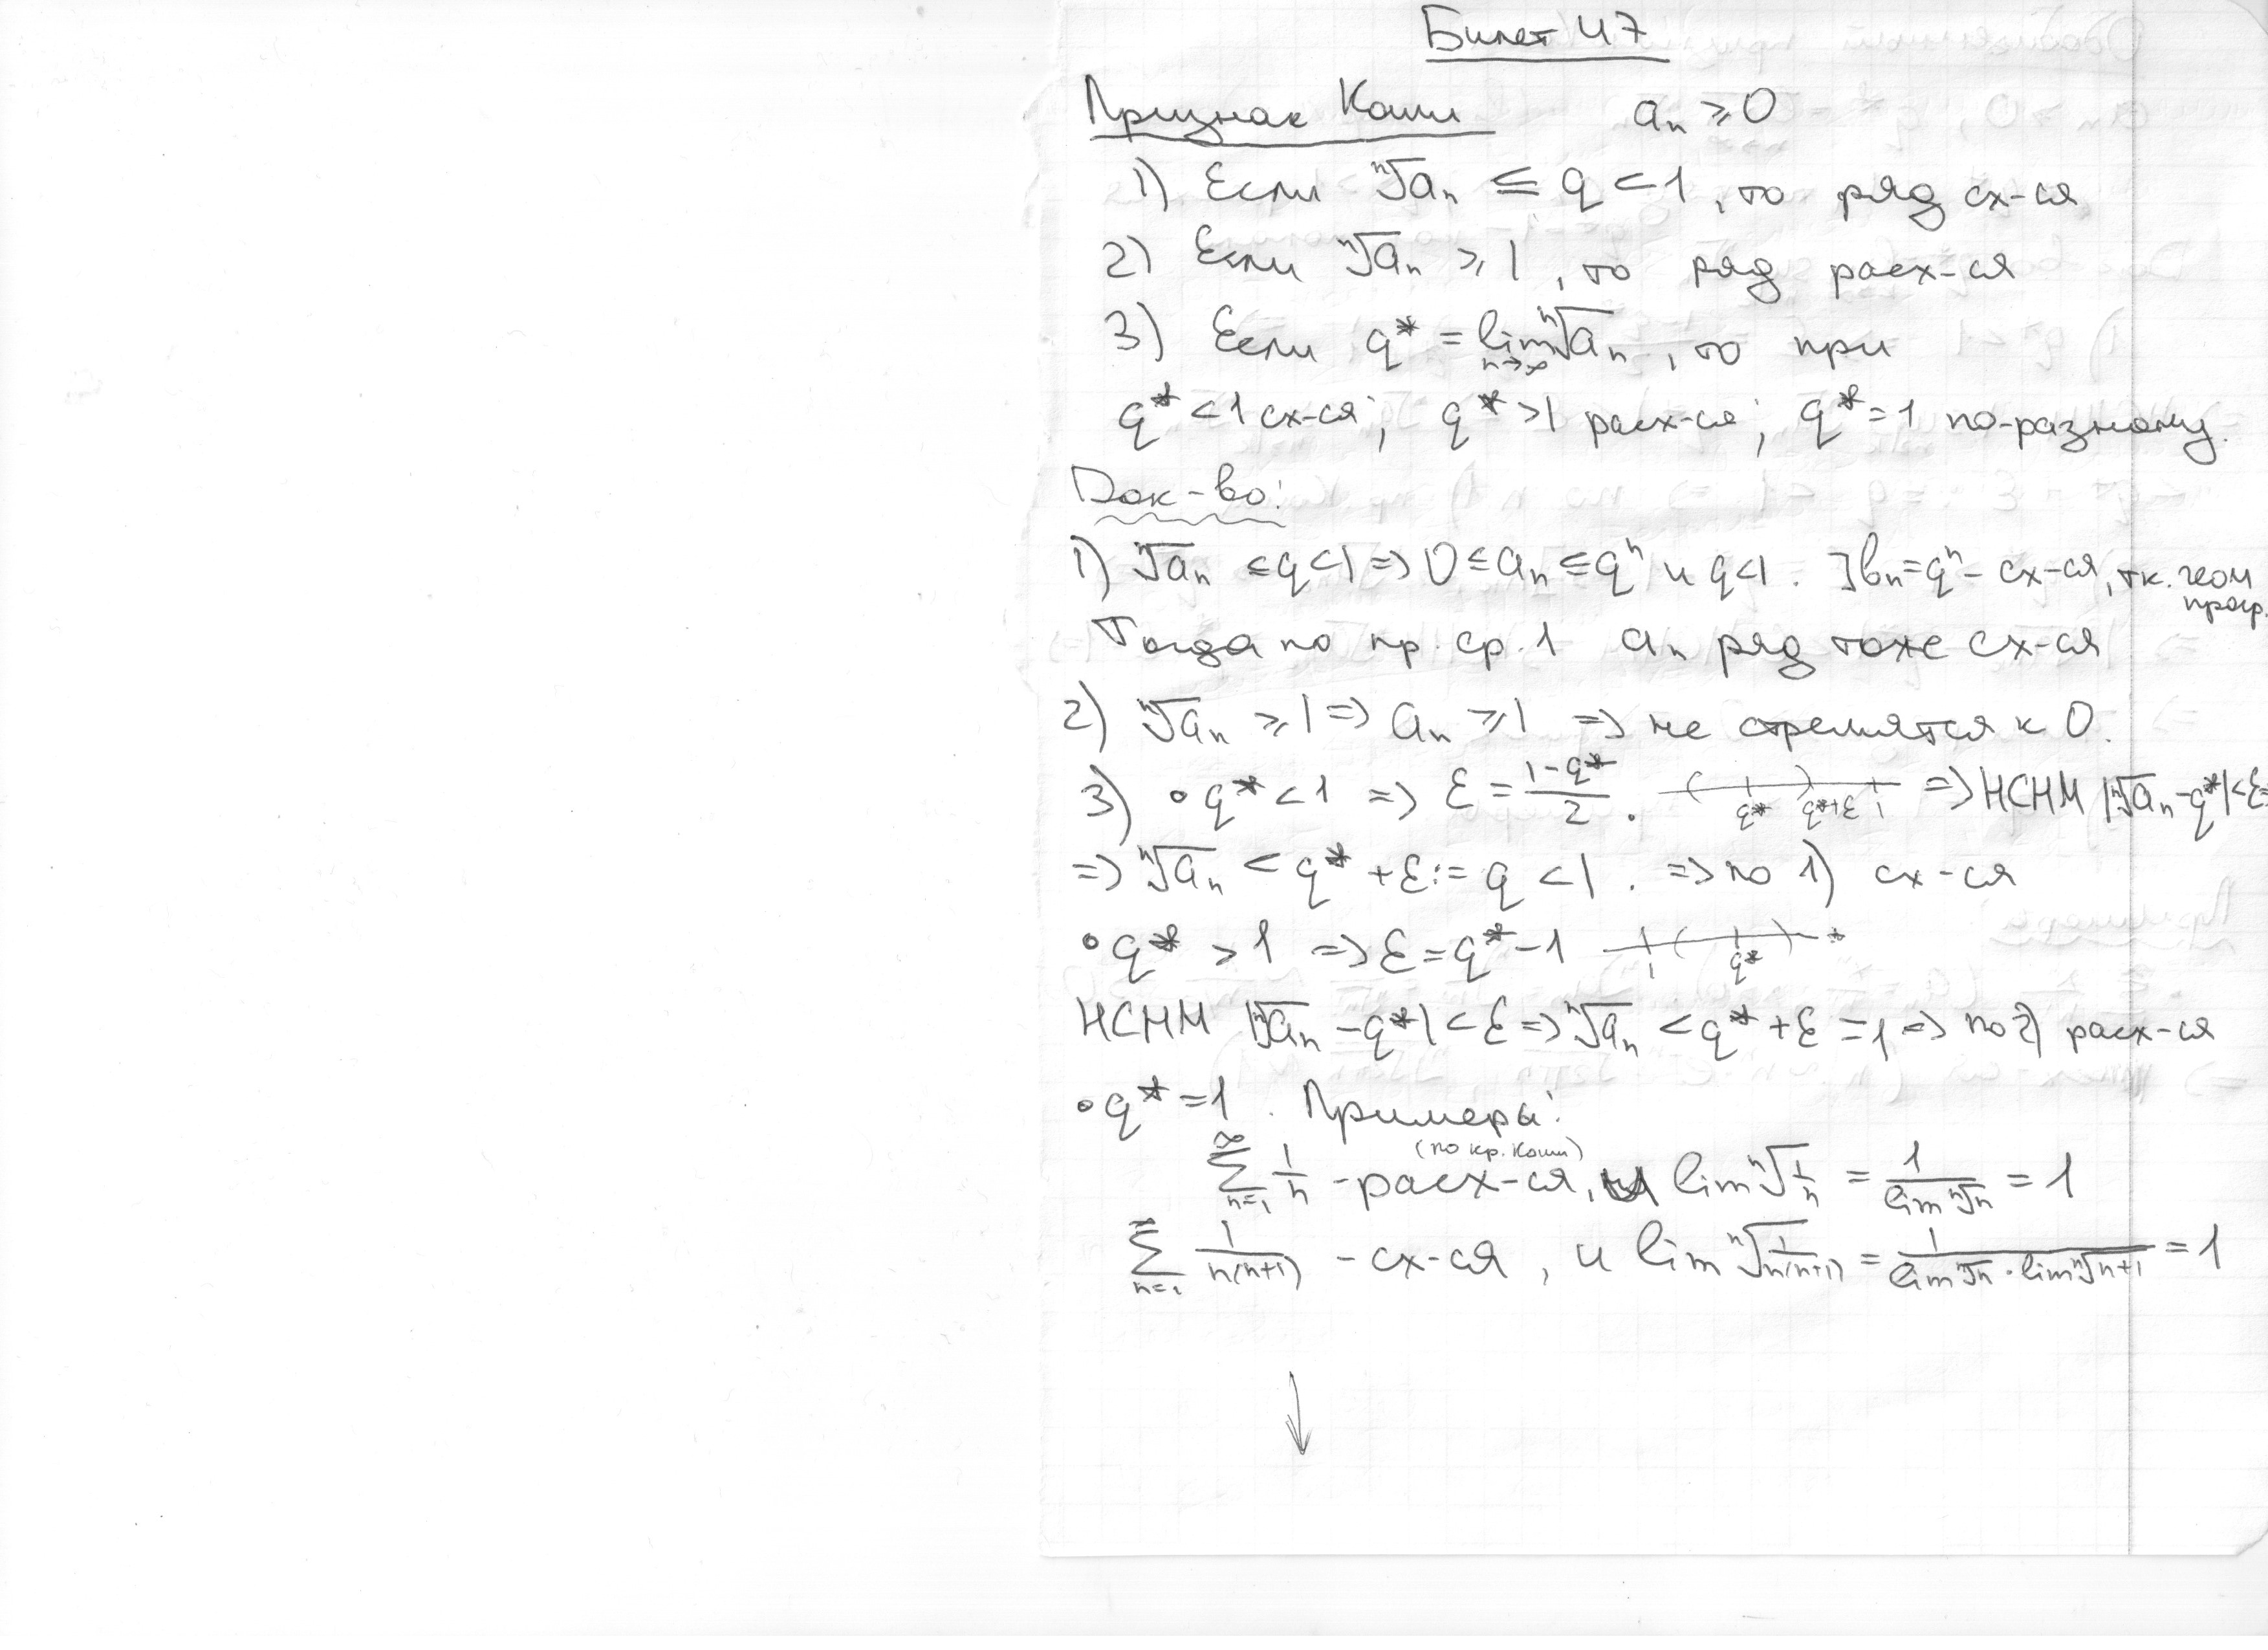 Билет 47
Признак Коши aₙ ⩾ 0
1) Если ⁿ√aₙ ≤ q < 1, то ряд сх-ся
2) Если ⁿ√aₙ ⩾ 1, то ряд расх-ся
3) Если q* = lim ⁿ√aₙ, то при
n→∞
q* < 1 сх-ся; q* > 1 расх-ся; q* = 1 по-разному.
Док-во:
1) ⁿ√aₙ ≤ q < 1 => 0 ≤ aₙ ≤ qⁿ и q < 1. ]bₙ = qⁿ - сх-ся, т.к. геом прогр.
Тогда по пр. ср. 1 aₙ ряд тоже сх-ся
2) ⁿ√aₙ ⩾ 1 => aₙ ⩾ 1 => не стремятся к 0.
3) • q* < 1 => ε = (1-q*)/2 . q* q*+ε 1 => НСНМ |ⁿ√aₙ - q*| < ε =
=> ⁿ√aₙ < q* + ε := q < 1 . => по 1) сх-ся
• q* > 1 => ε = q* - 1 1 q*
НСНМ |ⁿ√aₙ - q*| < ε => ⁿ√aₙ < q* + ε = 1 => по 2) расх-ся
• q* = 1 . Примеры:
∑ₙ₌₁^∞ 1/n - расх-ся (по кр. Коши), и lim ⁿ√(1/n) = 1/(lim ⁿ√n) = 1
∑ₙ₌₁^∞ 1/(n(n+1)) - сх-ся, и lim ⁿ√(1/(n(n+1))) = 1/(lim ⁿ√n · lim ⁿ√(n+1)) = 1